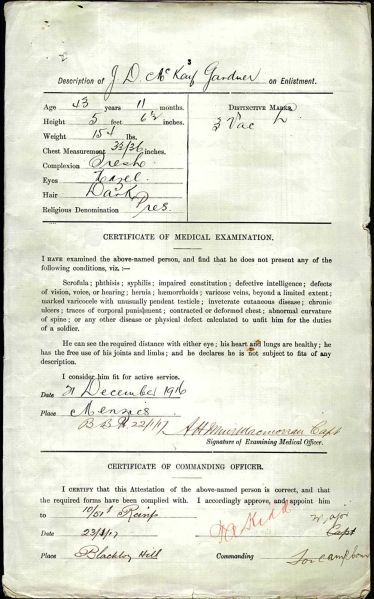 3
Description of J. D. McKay Gardner on Enlistment.
Age 43 years 11 months.
Height 5 feet 6½ inches.
Weight lbs.
Chest Measurement inches.
Complexion Fresh
Eyes Hazel
Hair Dark
Religious Denomination Pres.
Distinctive Marks.
3 Vac L
CERTIFICATE OF MEDICAL EXAMINATION.
I HAVE examined the above-named person, and find that he does not present any of the
following conditions, viz. :—
Scrofula; phthisis; syphilis; impaired constitution; defective intelligence; defects
of vision, voice, or hearing; hernia; hæmorrhoids; varicose veins, beyond a limited extent;
marked varicocele with unusually pendent testicle; inveterate cutaneous disease; chronic
ulcers; traces of corporal punishment; contracted or deformed chest; abnormal curvature
of spine; or any other disease or physical defect calculated to unfit him for the duties
of a soldier.
He can see the required distance with either eye; his heart and lungs are healthy; he
has the free use of his joints and limbs; and he declares he is not subject to fits of any
description.
I consider him fit for active service.
Date 21 December 1916
Place Menzies
B 22/1/17
Capt
Signature of Examining Medical Officer.
CERTIFICATE OF COMMANDING OFFICER.
I CERTIFY that this Attestation of the above-named person is correct, and that
the required forms have been complied with. I accordingly approve, and appoint him
to 10/51st Reinfs
Major
Capt
Date 23/1/17
Place Blackboy Hill
Commanding